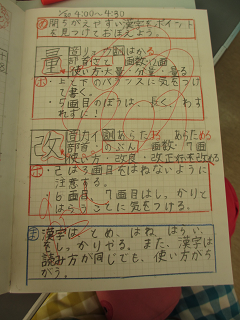 4:00~4:30
間ちがえやすい漢字をポイント
を見つけておぼえよう。
量
音リョウ 訓はかる
部首里 画数12画
使い方大量・分量・量る
・上と下のバランスに気をつけ
て書く。
・5画目のぼうは、長く、わす
れずに!
改
音カイ 訓あらたまる あらためる
部首のぶん 画数・7画
使い方・改良・改正 れを改める
・己は3画目をはねないように
注意する。
・6画目、7画目はしっかりと
はらうことに気をつける。
漢字は、とめ、はね、はらい、
をしっかりやる。また、漢字は
読み方が同じでも、使い方がち
がう。